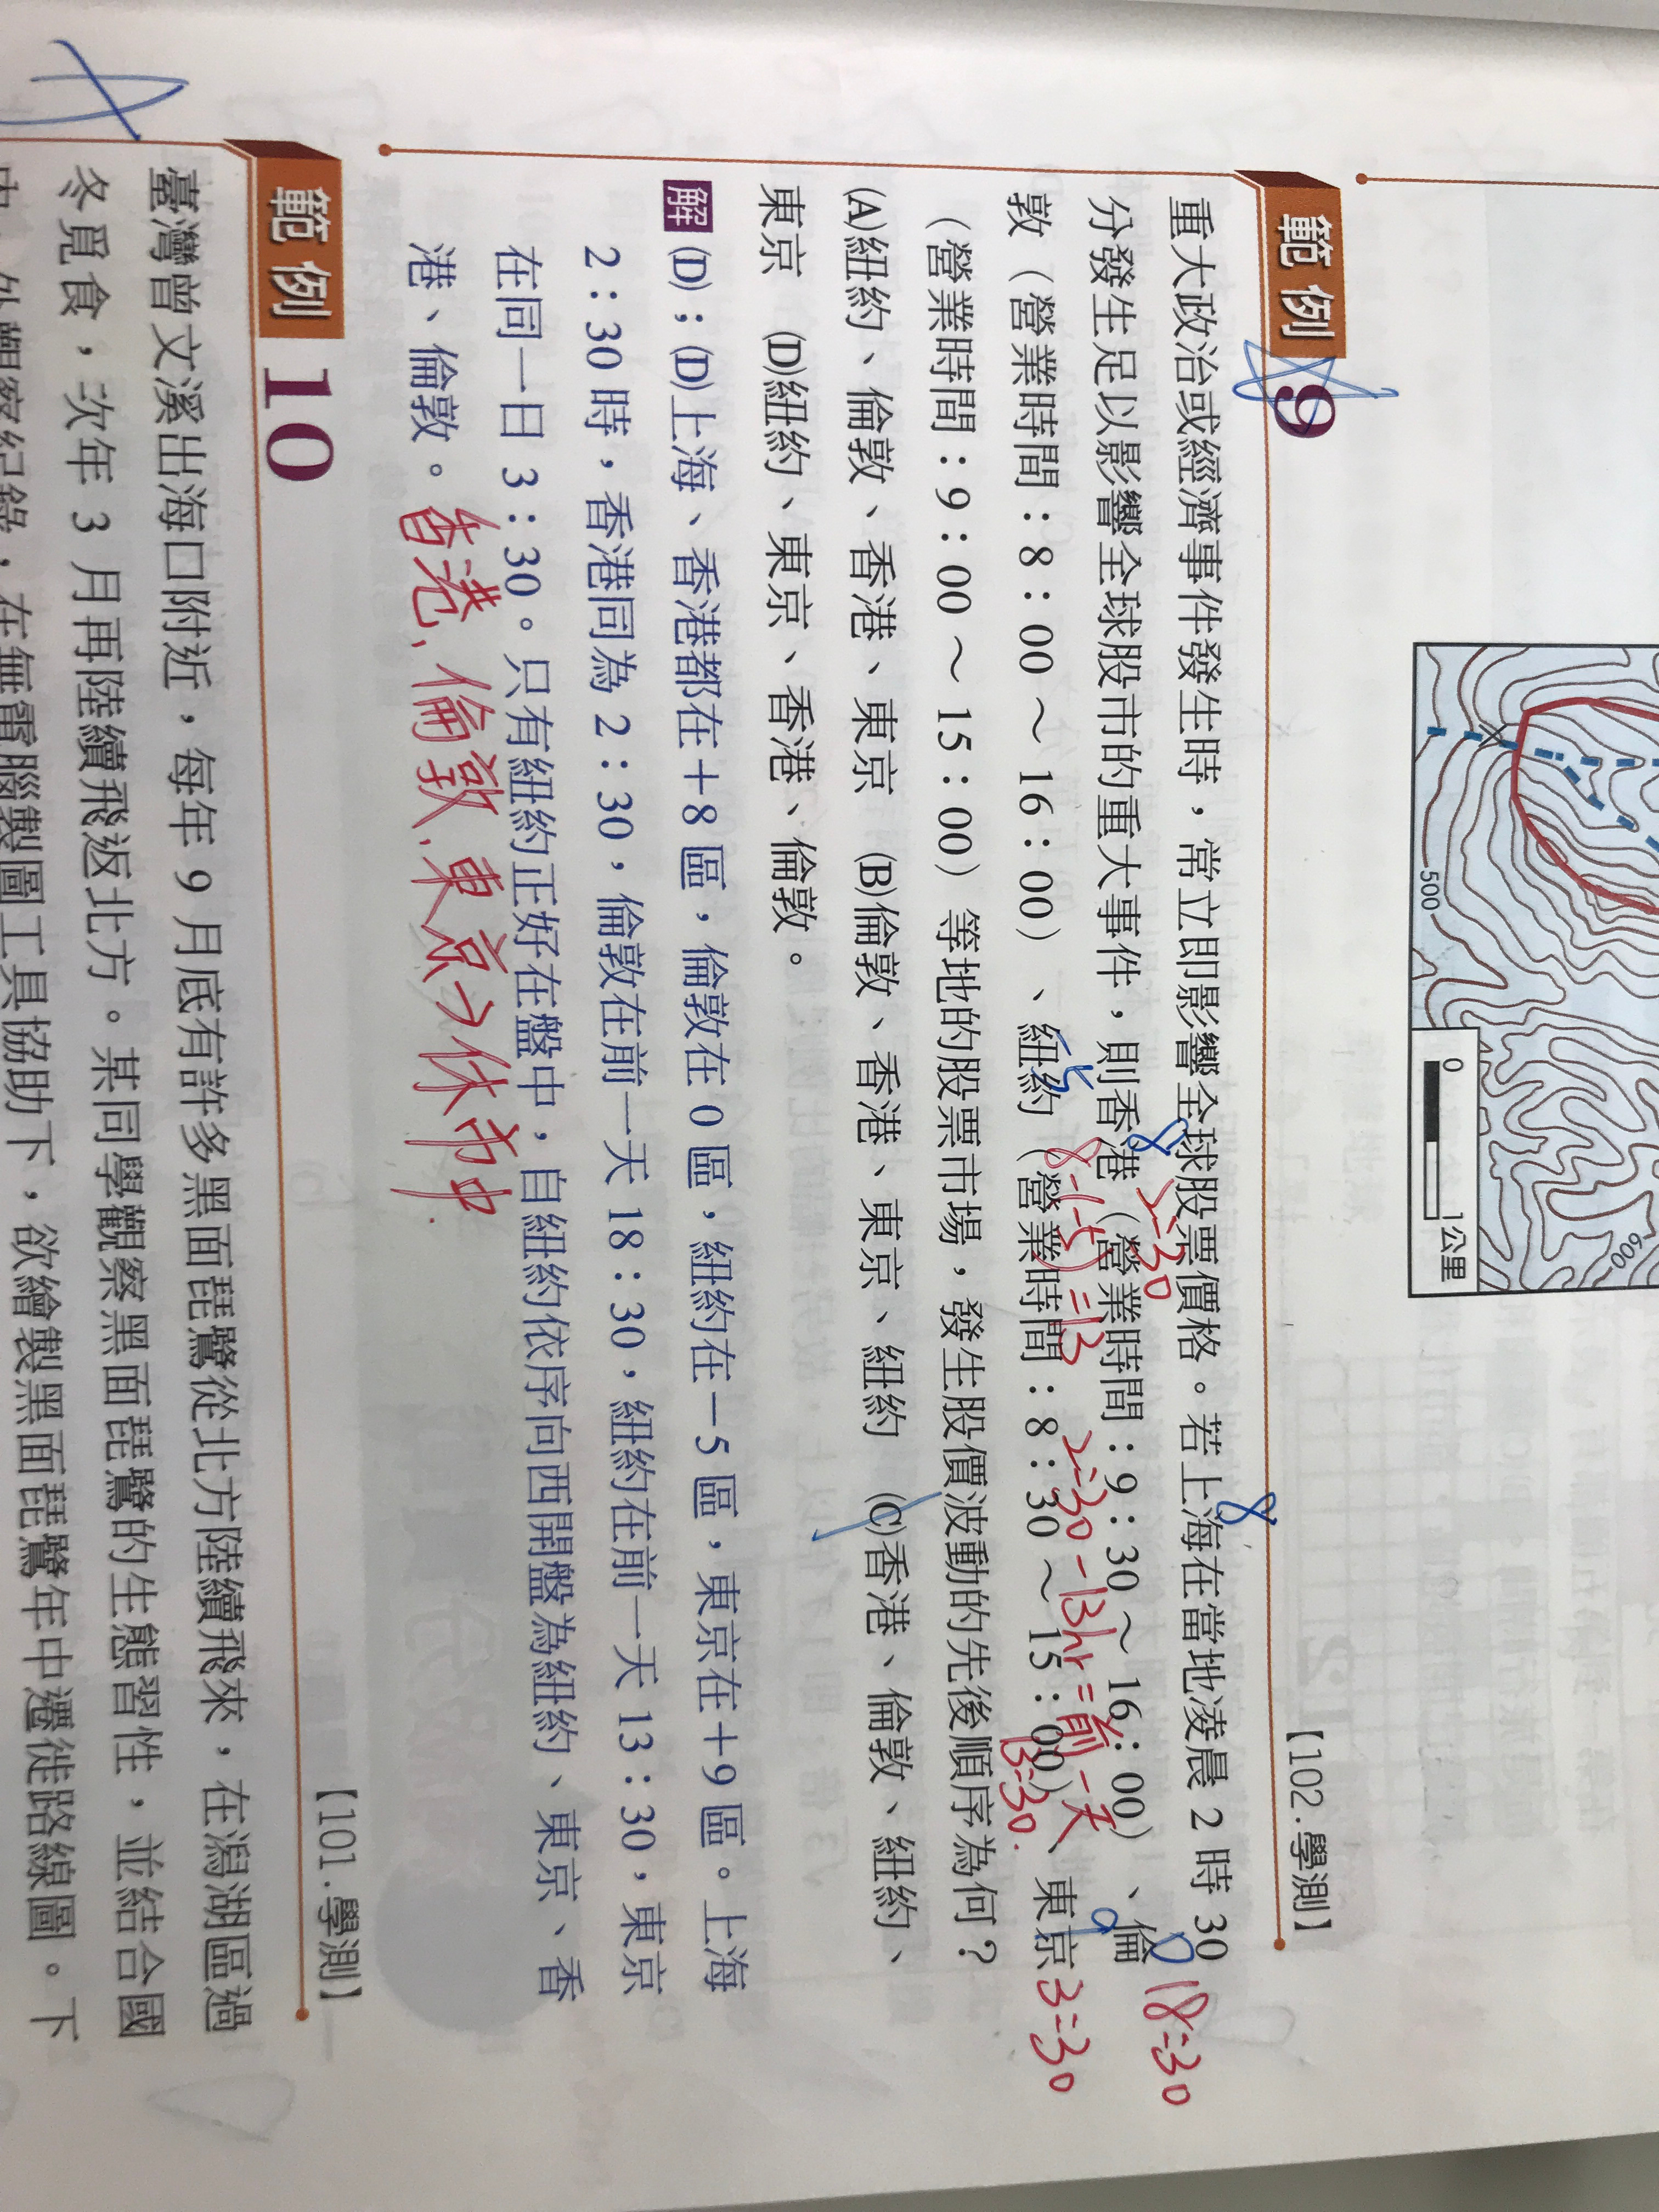 500
600
0 1公里
範例 9 【102.學測】
重大政治或經濟事件發生時，常立即影響全球股票價格。若上海在當地凌晨 2 時 30
分發生足以影響全球股市的重大事件，則香港（營業時間：9：30～16：00）、倫
敦（營業時間：8：00～16：00）、紐約（營業時間：8：30～15：00）、東京
（營業時間：9：00～15：00）等地的股票市場，發生股價波動的先後順序為何？
(A)紐約、倫敦、香港、東京 (B)倫敦、香港、東京、紐約 (C)香港、倫敦、紐約、
東京 (D)紐約、東京、香港、倫敦。
8
8
2=30
0
18=30
8-(-5)=13
2=30-13hr=前一天
13=30.
3=30
解 (D)；(D)上海、香港都在＋8 區，倫敦在 0 區，紐約在－5 區，東京在＋9 區。上海
2：30 時，香港同為 2：30，倫敦在前一天 18：30，紐約在前一天 13：30，東京
在同一日 3：30。只有紐約正好在盤中，自紐約依序向西開盤為紐約、東京、香
港、倫敦。
香港、倫敦、東京→休市中.
範例 10 【101.學測】
臺灣曾文溪出海口附近，每年 9 月底有許多黑面琵鷺從北方陸續飛來，在潟湖區過
冬覓食，次年 3 月再陸續飛返北方。某同學觀察黑面琵鷺的生態習性，並結合國
外觀察紀錄，在無電腦製圖工具協助下，欲繪製黑面琵鷺年中遷徙路線圖。下